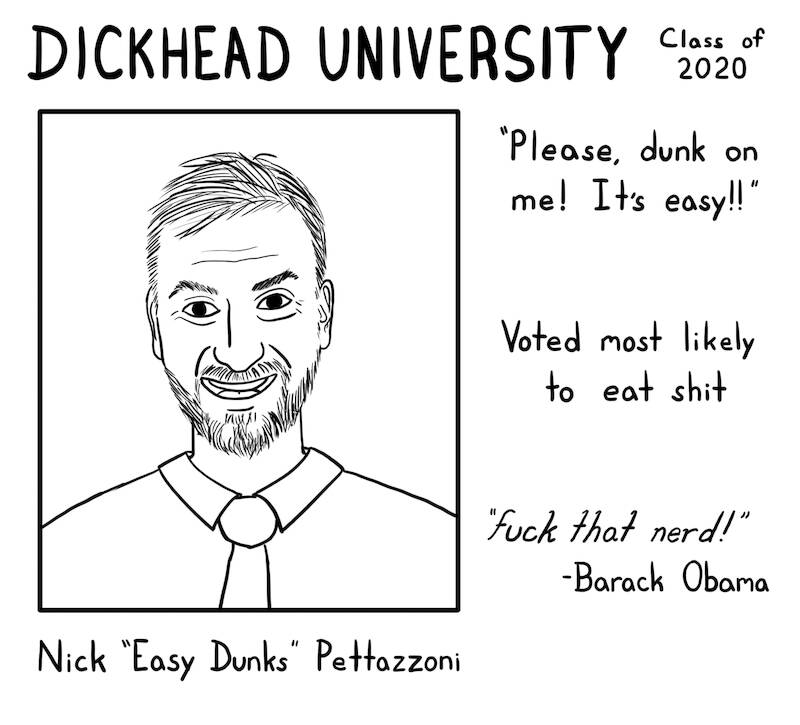 DICKHEAD UNIVERSITY
Class of
2020
"Please, dunk on
me! It's easy!!"
Voted most likely
to eat shit
"fuck that nerd!"
-Barack Obama
Nick "Easy Dunks" Pettazzoni